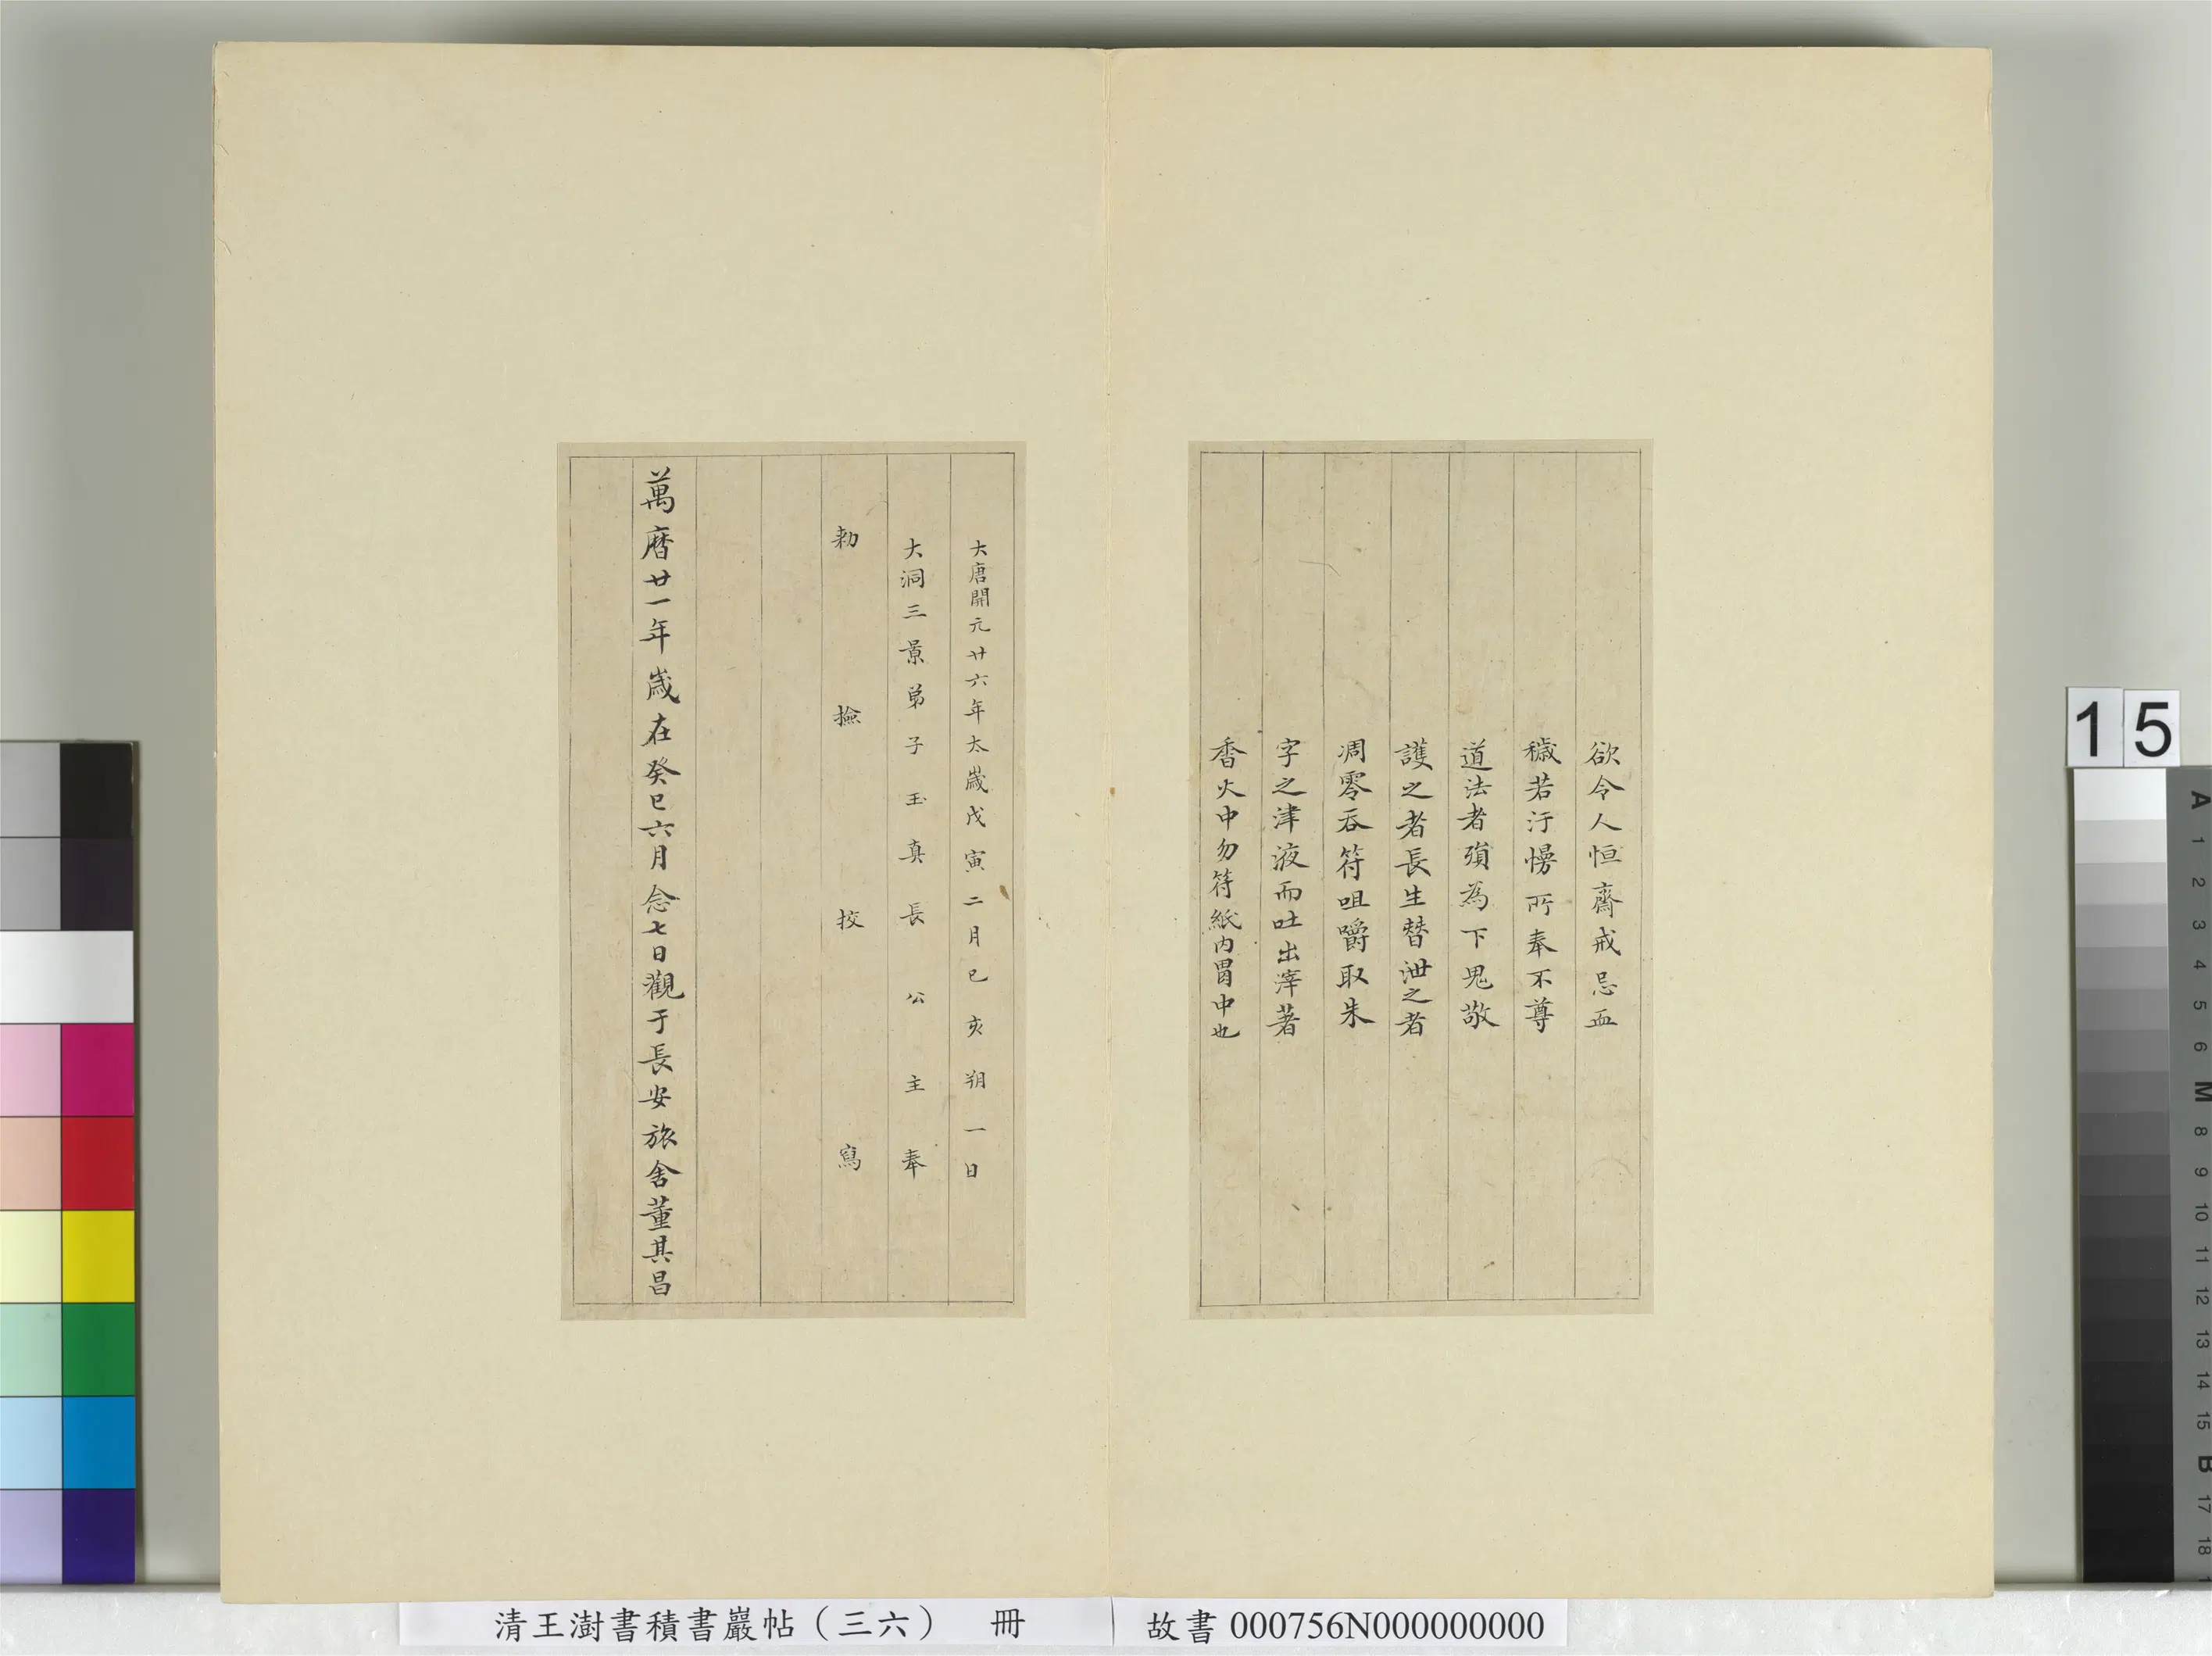 欲令人恒齋戒忌血
穢若汙慢所奉不尊
道法者須為下鬼敬
護之者長生替泄之者
凋零吞符咀嚼取朱
字之津液而吐出滓著
香火中勿符紙內胃中也
大唐開元廿六年太歲戊寅二月己亥朔一日
大洞三景弟子玉真長公主奉
勑 撿 挍 寫
萬曆廿一年歲在癸巳六月念七日觀于長安旅舍董其昌
15
A 1 2 3 4 5 6 M 8 9 10 11 12 13 14 15 B 17 18
清王澍書積書巖帖（三六） 冊
故書 000756N000000000